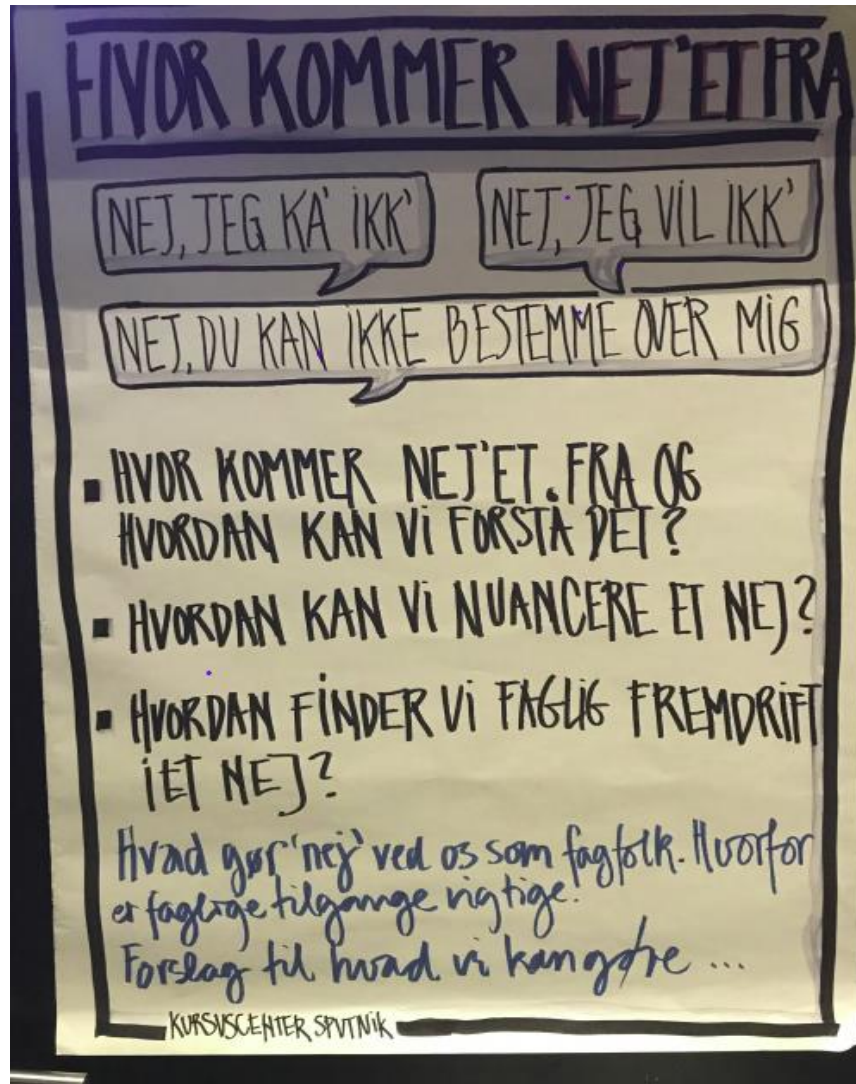 HVOR KOMMER NEJ'ET FRA
NEJ, JEG KA' IKK'
NEJ, JEG VIL IKK'
NEJ, DU KAN IKKE BESTEMME OVER MIG
▪ HVOR KOMMER NEJ'ET. FRA OG
HVORDAN KAN VI FORSTÅ DET?
▪ HVORDAN KAN VI NUANCERE ET NEJ?
▪ HVORDAN FINDER VI FAGLIG FREMDRIFT
I ET NEJ?
Hvad gør 'nej' ved os som fagfolk. Hvorfor
er faglige tilgange vigtige.
Forslag til hvad vi kan gøre ...
KURSUSCENTER SPUTNIK